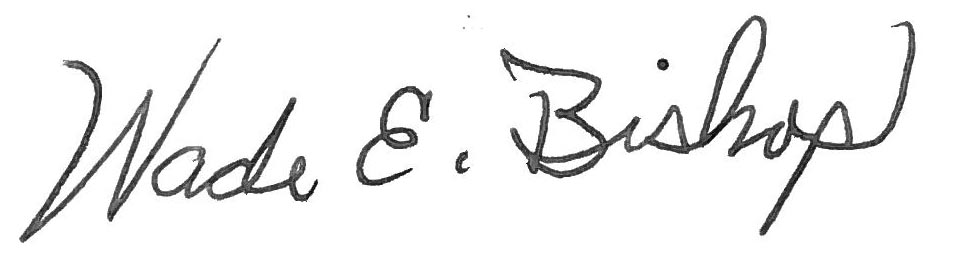 Wade E. Bishop